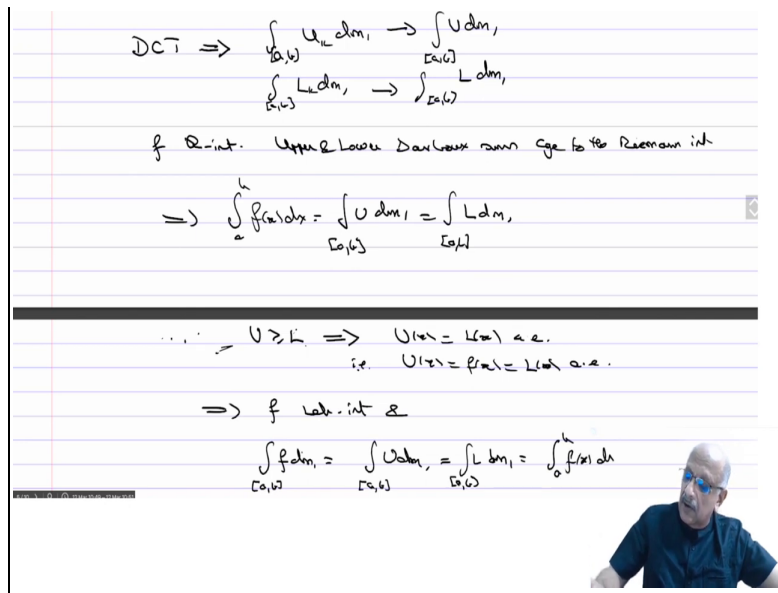 DCT ⇒ ∫_[a,b] U_k dm₁ → ∫_[a,b] U dm₁
∫_[a,b] L_k dm₁ → ∫_[a,b] L dm₁
f R-int. Upper & Lower Darboux sum cge to the Riemann int
⇒ ∫_a^b f(x)dx = ∫_[a,b] U dm₁ = ∫_[a,b] L dm₁
U ≥ L ⇒ U(x) = L(x) a.e.
i.e. U(x) = f(x) = L(x) a.e.
⇒ f Leb-int &
∫_[a,b] f dm₁ = ∫_[a,b] U dm₁ = ∫_[a,b] L dm₁ = ∫_a^b f(x) dx